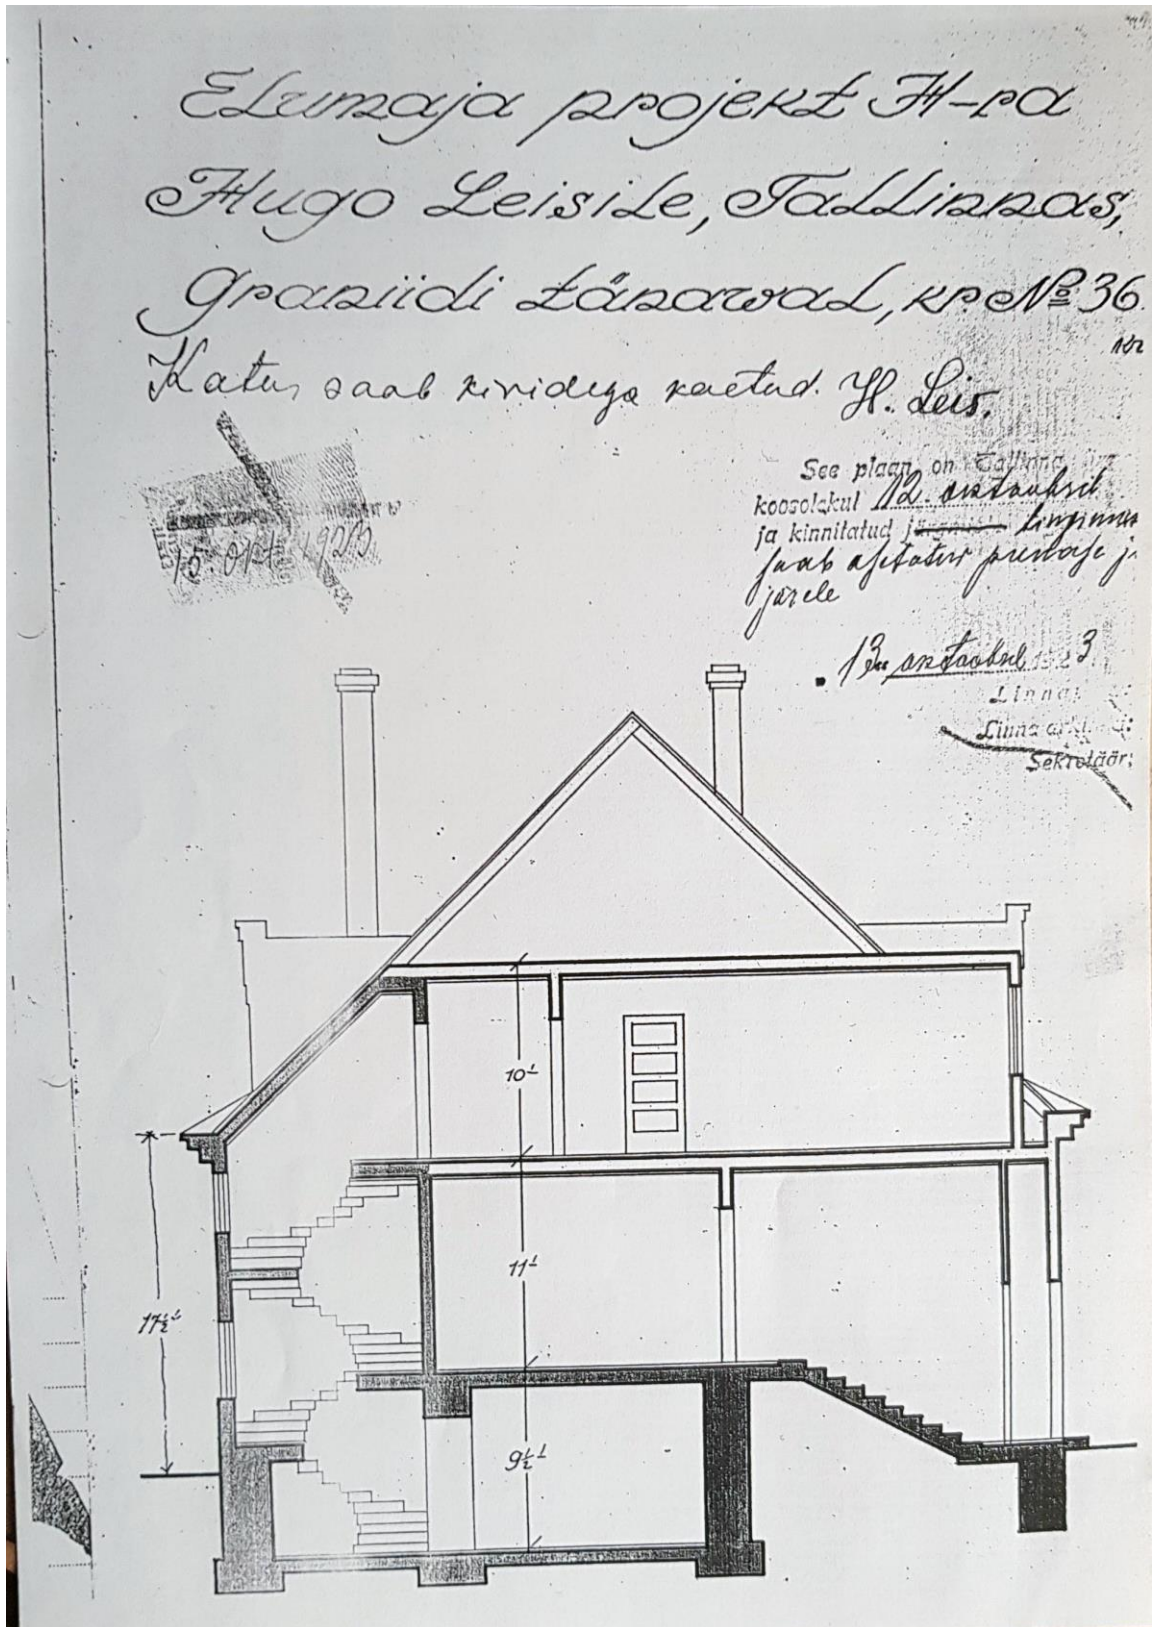 Elumaja projekt H-ra
Hugo Leisile, Tallinnas,
Graniidi tänawal, kr. № 36.
Katus saab kividega kaetud. H. Leis.
See plaan on Tallinna
koosolekul 12. oktoobril
ja kinnitatud
saab
järele
15. OKT. 1923
13. oktoobril 1923
Linna
Linna arhit
Sekretäär:
10'
11'
17½'
9½'